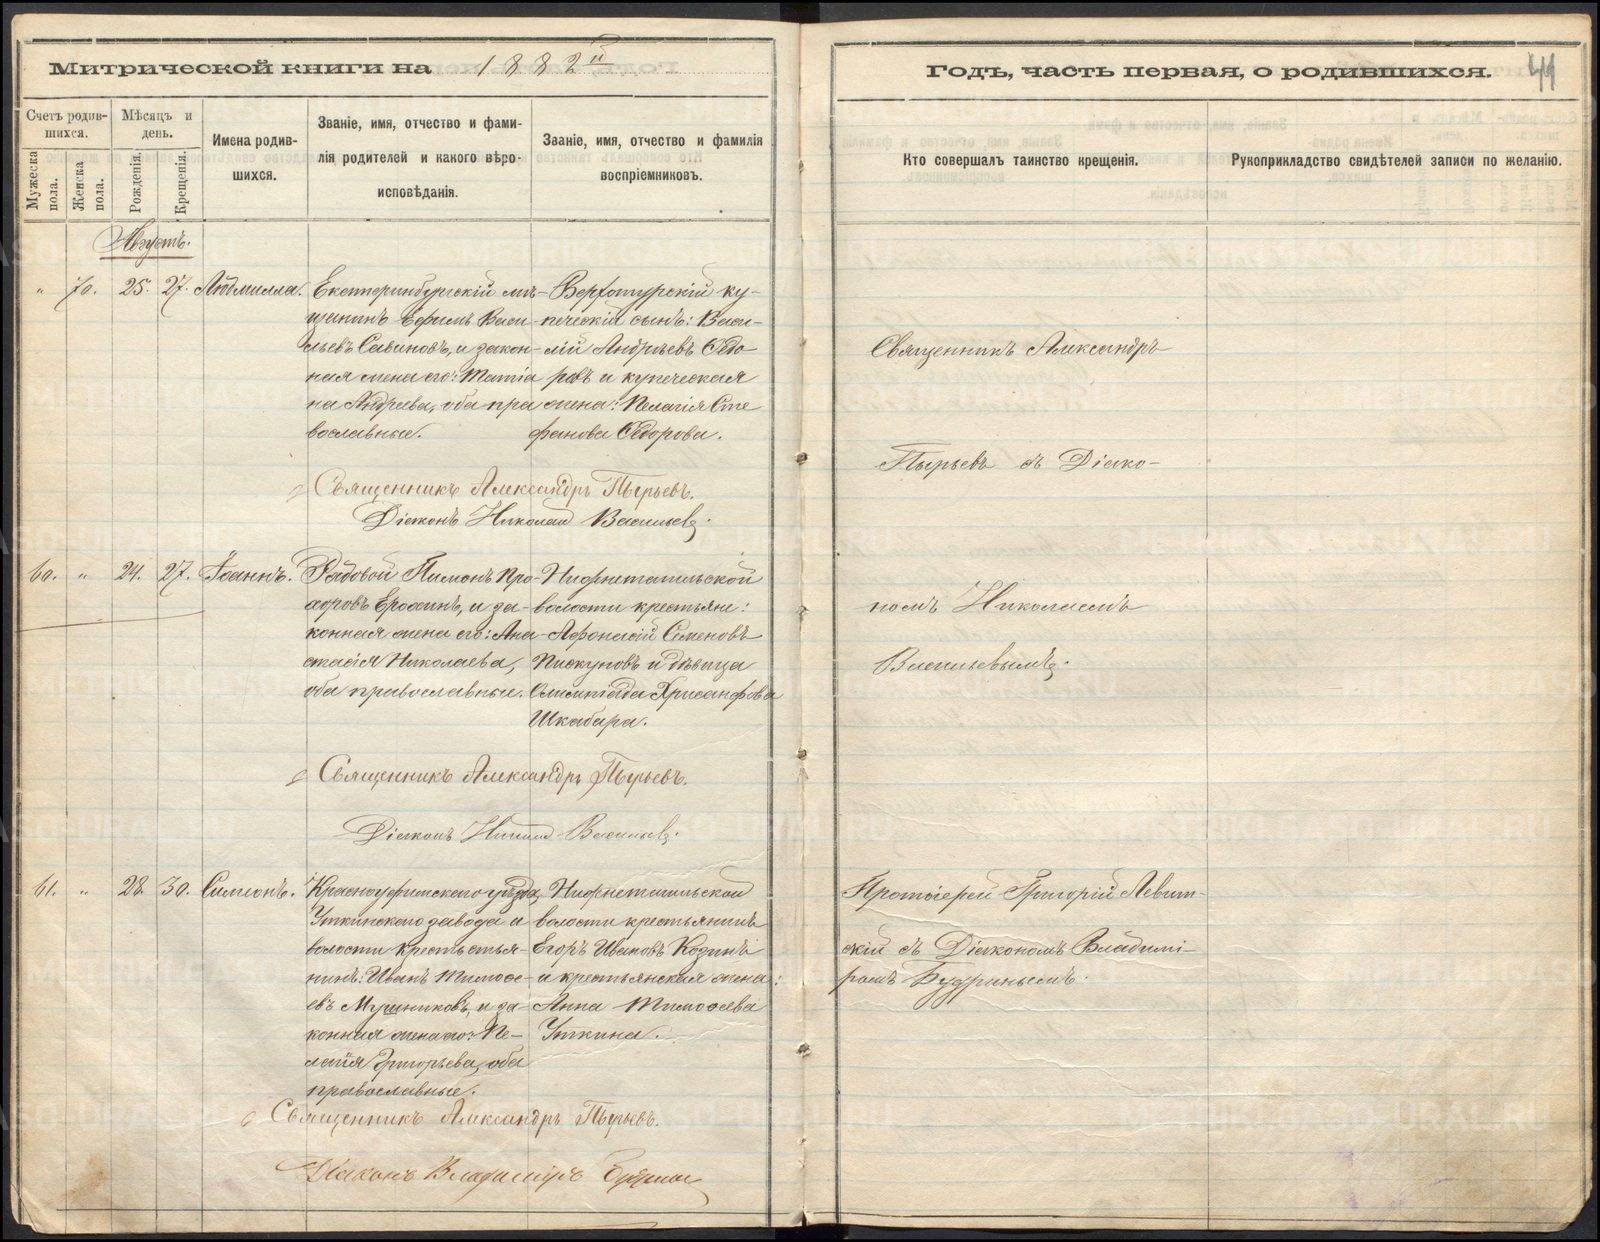 Митрической книги на 1882й
Годъ, часть первая, о родившихся. 44
Счетъ родив-
шихся.
Мужеска
пола.
Женска
пола.
Мѣсяцъ и
день.
Рожденія.
Крещенія.
Имена родив-
шихся.
Званіе, имя, отчество и фами-
лія родителей и какого вѣро-
исповѣданія.
Званіе, имя, отчество и фамилія
воспріемниковъ.
Кто совершалъ таинство крещенія.
Рукоприкладство свидѣтелей записи по желанію.
Августъ.
" 70. 25. 27. Людмилла.
Екатеринбургскій мѣ-
щанинъ Ефимъ Васи-
льевъ Савиновъ, и закон-
ная жена его: Матрiо
на Андреева, оба пра
вославные.
Верхотурскій ку-
печескій сынъ: Васи-
лій Андрѣевъ Ѳедо
ровъ и купеческая
жена: Пелагія Сте
фанова Ѳедорова.
Священникъ Александръ
Пырьевъ съ Діако-
номъ Николаемъ
Васильевымъ.
Священникъ Александръ Пырьевъ.
Діаконъ Николай Васильевъ.
60. " 24. 27. Іоаннъ.
Рядовой Пименъ Про-
хоровъ Ерохинъ, и за-
конная жена его: Ана-
стасія Николаева,
оба православные.
Нижнетагильской
волости крестьяне:
Афонасій Семеновъ
Пискуновъ и дѣвица
Олимпіада Хрисанфова
Шкабара.
Священникъ Александръ Пырьевъ.
Діаконъ Николай Васильевъ.
61. " 28. 30. Симеонъ.
Красноуфимскаго уѣзда,
Уткинскаго завода и
волости крестьстья-
нинъ: Иванъ Тимоѳе-
евъ Мушниковъ, и за-
конная жена его: Пе-
лагія Григорьева, оба
православные.
Нижнетагильской
волости крестьянинъ
Егоръ Ивановъ Козинъ
и крестьянская жена:
Анна Тимоѳеева
Уткина.
Протоіерей Григорій Левит-
скій съ Діакономъ Владимі-
ромъ Будринымъ.
Священникъ Александръ Пырьевъ.
Діаконъ Владиміръ Будринъ